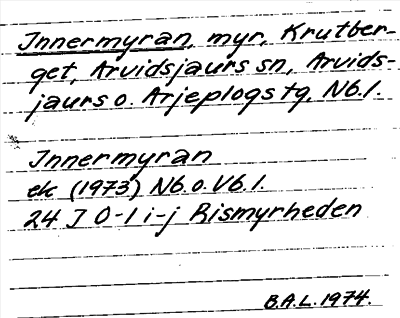 Innermyran, myr, Krutber-
get, Arvidsjaurs sn, Arvids-
jaurs o. Arjeplogs tg, Nb.l.
Innermyran
ek (1973) Nb. o. Vb.l.
24 J 0-1 i-j Rismyrheden
B.A.L. 1974.